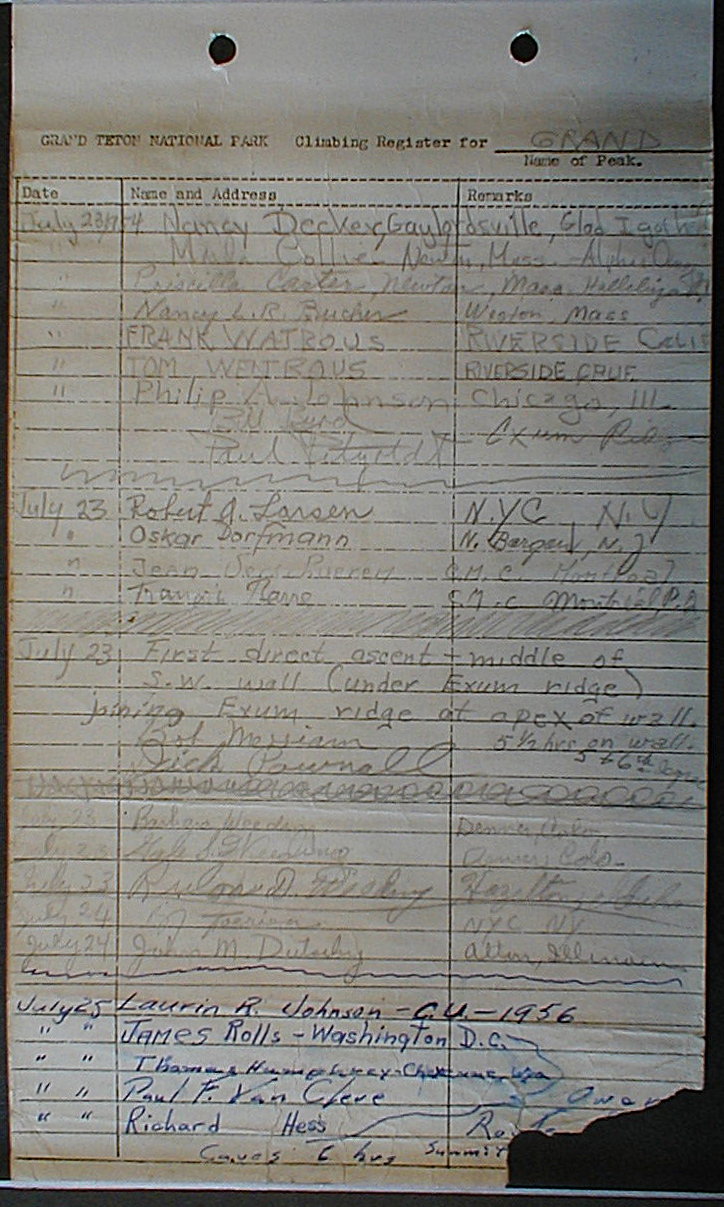 GRAND TETON NATIONAL PARK Climbing Register for GRAND
Name of Peak.
Date Name and Address Remarks
July 23, Nancy Decker, Gaylordsville, Glad I got
" Collier Newton, Mass.
" Priscilla Carter, Newton, Mass.
" Nancy L.R. Bucher Weston, Mass
" FRANK WATROUS RIVERSIDE CALIF
" TOM WATROUS RIVERSIDE CALIF.
" Philip A. Johnson Chicago, Ill.
Bill Byrd
Paul Petzoldt - Exum
July 23 Robert A. Larsen N.Y.C N.Y
" Oskar Dorfmann N. Bergen, N.J
" Jean Montreal
" S.M.C Montreal, P.Q
July 23 First direct ascent - middle of
S.W. wall (under Exum ridge)
joining Exum ridge at apex of wall.
Bob Merriam 5 1/2 hrs on wall.
Dick Pownall 5 + 6th
July 23 Denver, Colo.
July 23 Denver, Colo.
July 23
July 24 NYC NY
July 24 John M. Alton, Illinois
July 25 Laurin R. Johnson - C.U. - 1956
" " JAMES Rolls - Washington D.C.
" " Thomas Humphrey - Cheyenne, Wyo
" " Paul F. Van Cleve
" " Richard Hess
Caves 6 hrs Summit